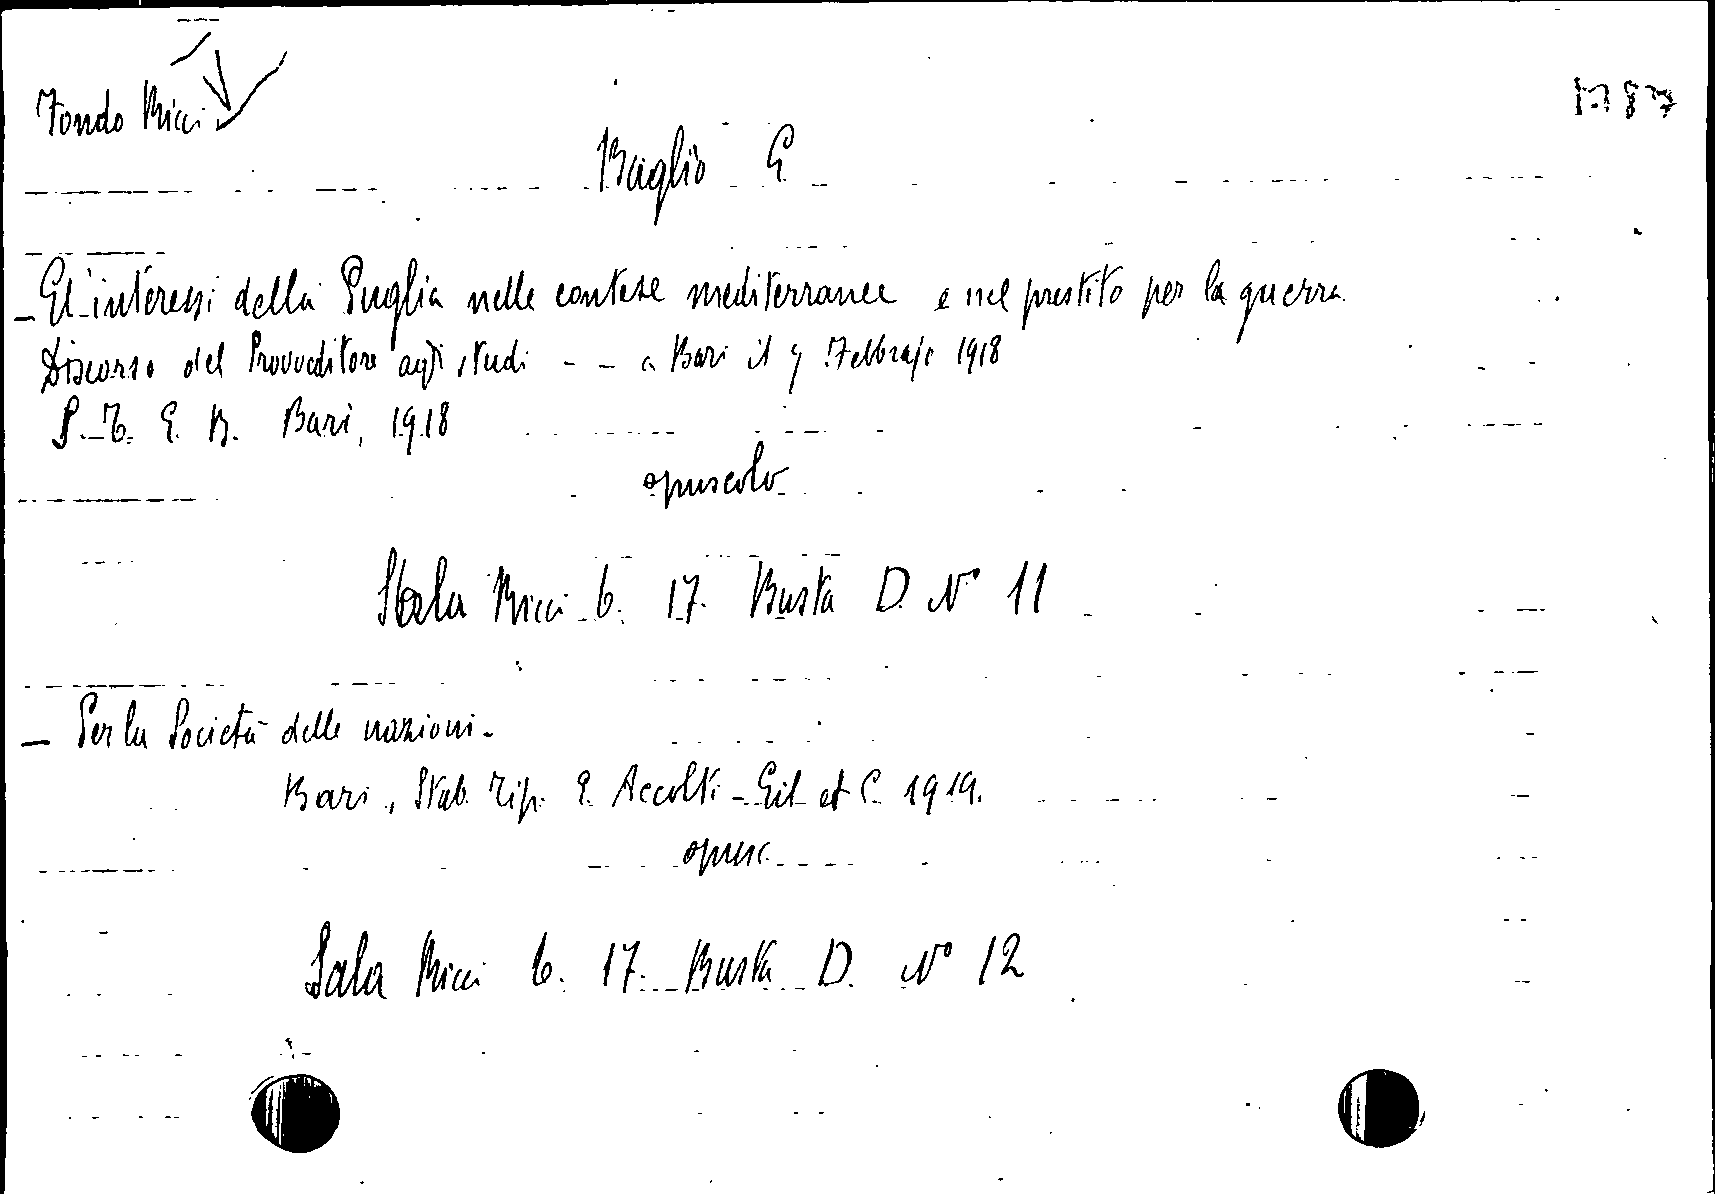 Fondo Ricci
1787
Baglio G
- Gl'interessi della Puglia nelle contese mediterranee e nel prestito per la guerra
Discorso del Provveditore agli studi - - a Bari il 9 Febbrajo 1918
P. T. E. B. Bari, 1918
opuscolo
Sala Ricci 6. 17. Busta D. N° 11
- Per la Società delle nazioni -
Bari, Stab. Tip. E. Accolti - Gil et C. 1919.
opusc.
Sala Ricci 6. 17. Busta D. N° 12